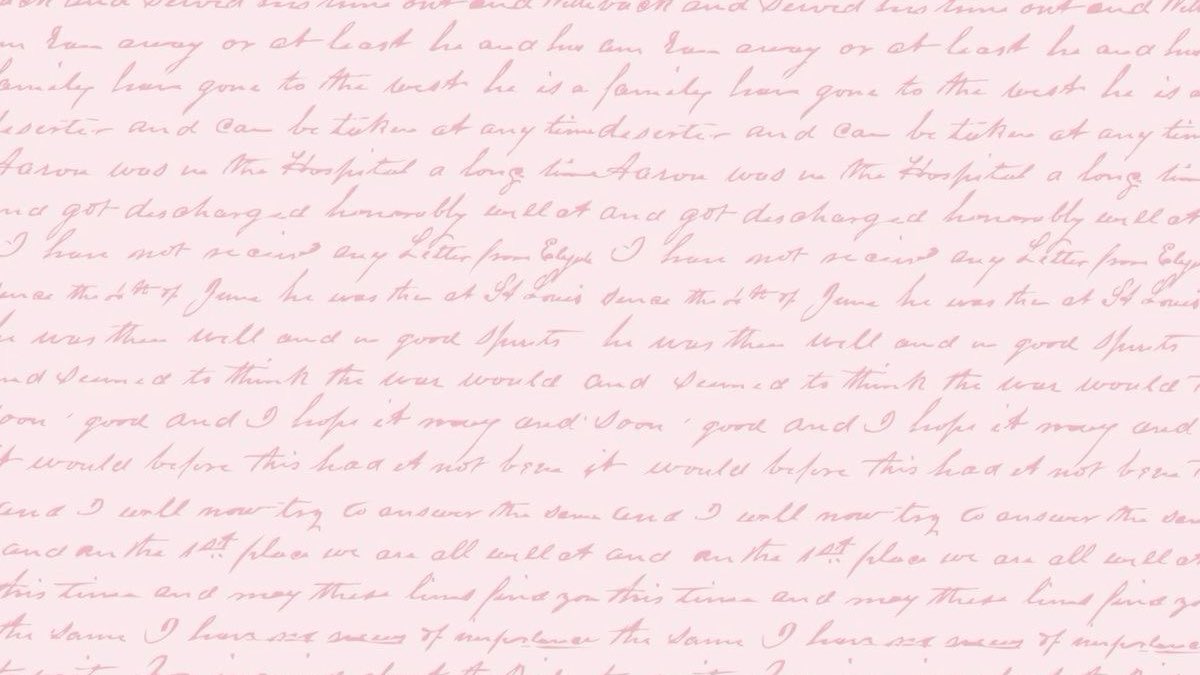 back and served his time out and back and served his time out and
am away or at least he and his am away or at least he and his
family have gone to the west he is a family have gone to the west he is a
deserter and can be taken at any time deserter and can be taken at any time
Aaron was in the Hospital a long time Aaron was in the Hospital a long time
and got discharged honorably well at and got discharged honorably well at
I have not any Letter from I have not any Letter from
since the of June he was then at St Louis since the of June he was then at St Louis
he was then well and in good spirits he was then well and in good spirits
and seemed to think the war would and seemed to think the war would
soon good and I hope it may and soon good and I hope it may and
it would before this had it not been it would before this had it not been
and I will now try to answer the same and I will now try to answer the same
and in the 1st place we are all well at and in the 1st place we are all well at
this time and may these lines find you this time and may these lines find you
the same I have of the same I have of